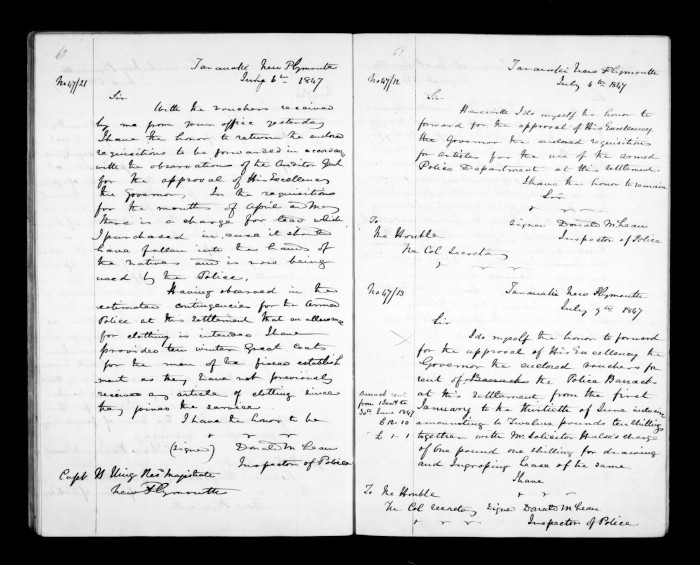 60
Taranaki New Plymouth
No 47/21 July 6th 1847
Sir
With the vouchers received
by me from your office yesterday
I have the honor to return the enclosed
requisitions to be forwarded in accordance
with the observations of the Auditor Genl
for the approval of His Excellency
the Governor. In the requisitions
for the months of April & May
there is a charge for lead which
I purchased in case it should
have fallen into the hands of
the natives and is now being
used by the Police.
Having observed in the
estimated contingencies for the Armed
Police at this settlement that an allowance
for clothing is intended I have
provided ten winter Great Coats
for the men of the fixed establish
ment as they have not previously
received any article of clothing since
they joined the service.
I have the honor to be
(Signed) Donald McLean
Inspector of Police
Capt H King Rest Magistrate
New Plymouth
61
Taranaki New Plymouth
No 47/12 July 6th 1847
Sir
Herewith I do myself the honor to
forward for the approval of His Excellency
the Governor the enclosed requisitions
for articles for the use of the armed
Police Department at this settlement.
I have the honor to remain
Sir
Signed Donald McLean
Inspector of Police
To
The Honble
The Col Secretary
Taranaki New Plymouth
No 47/13 July 9th 1847
Sir
I do myself the honor to forward
for the approval of His Excellency the
Governor the enclosed vouchers for
rent of Barrack the Police Barrack
at this settlement from the first
January to the thirtieth of June inclusive
amounting to Twelve pounds ten shillings
together with Mr Solicitor Halse's charge
of one pound one shilling for drawing
and Ingrossing Lease of the same
I have
Barrack rent
from 1 Jany to
30th June 1847
£12. 10
£1 - 1
To The Honble
The Col Secretary Signed Donald McLean
Inspector of Police